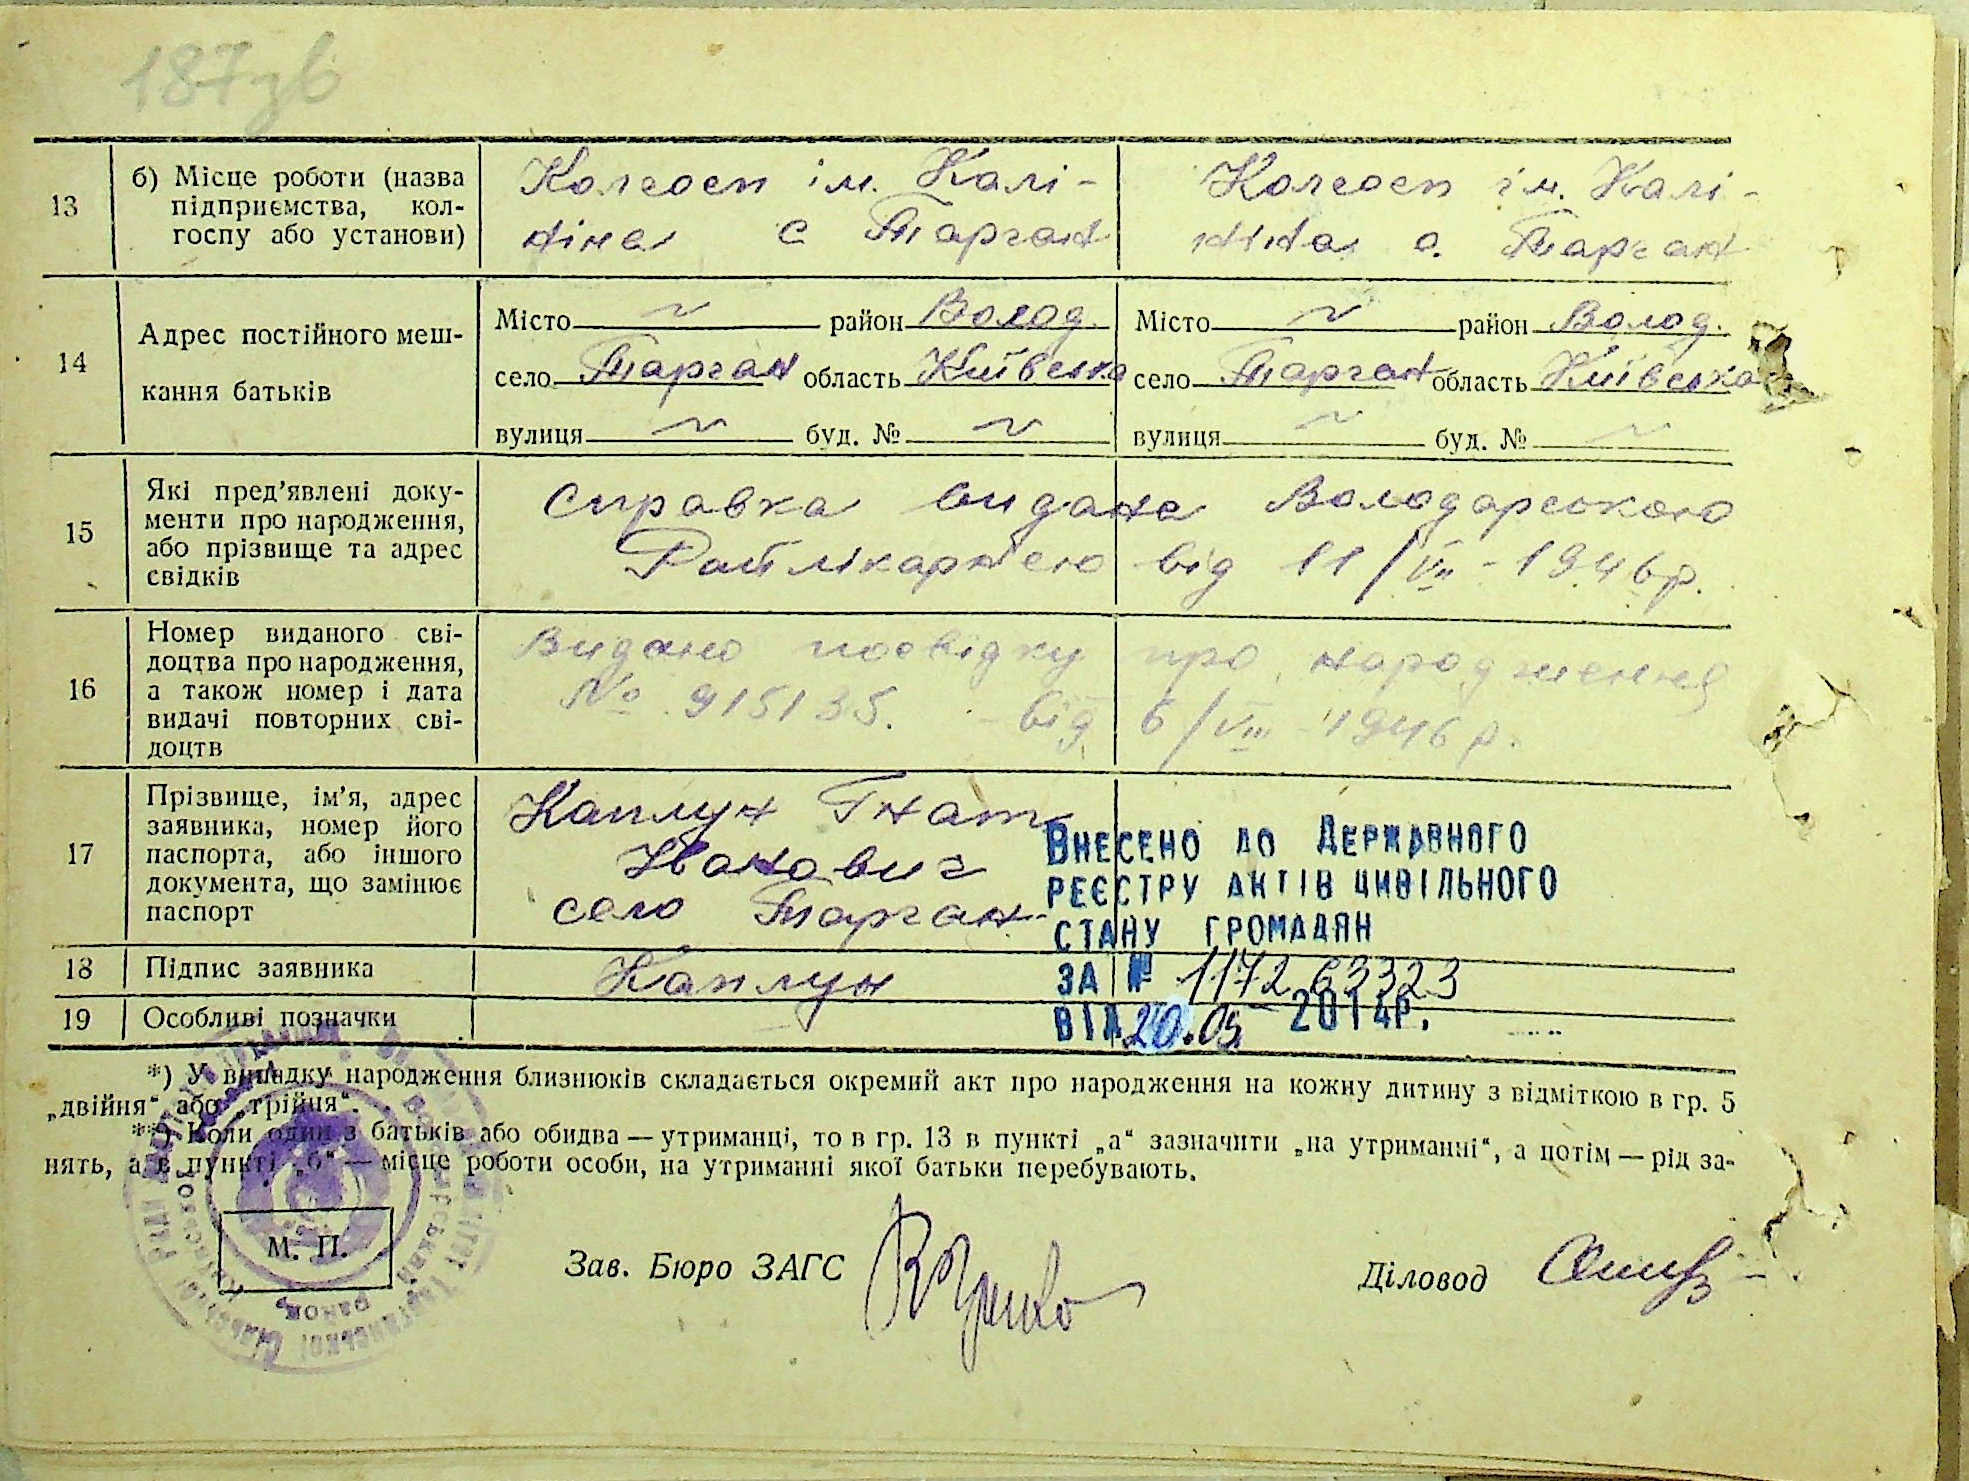 187зв
13
б) Місце роботи (назва
підприємства, кол-
госпу або установи)
Колгосп ім. Калі-
ніна с Тарган
Колгосп ім. Калі-
ніна с. Тарган
14
Адрес постійного меш-
кання батьків
Місто район Волод.
село Тарган область Київська
вулиця буд. №
Місто район Волод.
село Тарган область Київська
вулиця буд. №
15
Які пред'явлені доку-
менти про народження,
або прізвище та адрес
свідків
Справка видана Володарською
Райлікарнею від 11/VII - 1946р.
16
Номер виданого сві-
доцтва про народження,
а також номер і дата
видачі повторних сві-
доцтв
Видано посвідку про народження
№ 915135. від 6/VIII 1946 р.
17
Прізвище, ім'я, адрес
заявника, номер його
паспорта, або іншого
документа, що замінює
паспорт
Каплун Гнат
село Тарган
Внесено до Державного
реєстру актів цивільного
стану громадян
за № 1172 63323
від 20.05 2014р.
18
Підпис заявника
Каплун
19
Особливі позначки
*) У випадку народження близнюків складається окремий акт про народження на кожну дитину з відміткою в гр. 5
„двійня“ або „трійня“.
**) Коли один з батьків або обидва — утриманці, то в гр. 13 в пункті „а“ зазначити „на утриманні“, а потім — рід за-
нять, а в пункті „б“ — місце роботи особи, на утриманні якої батьки перебувають.
М. П.
Зав. Бюро ЗАГС
Діловод